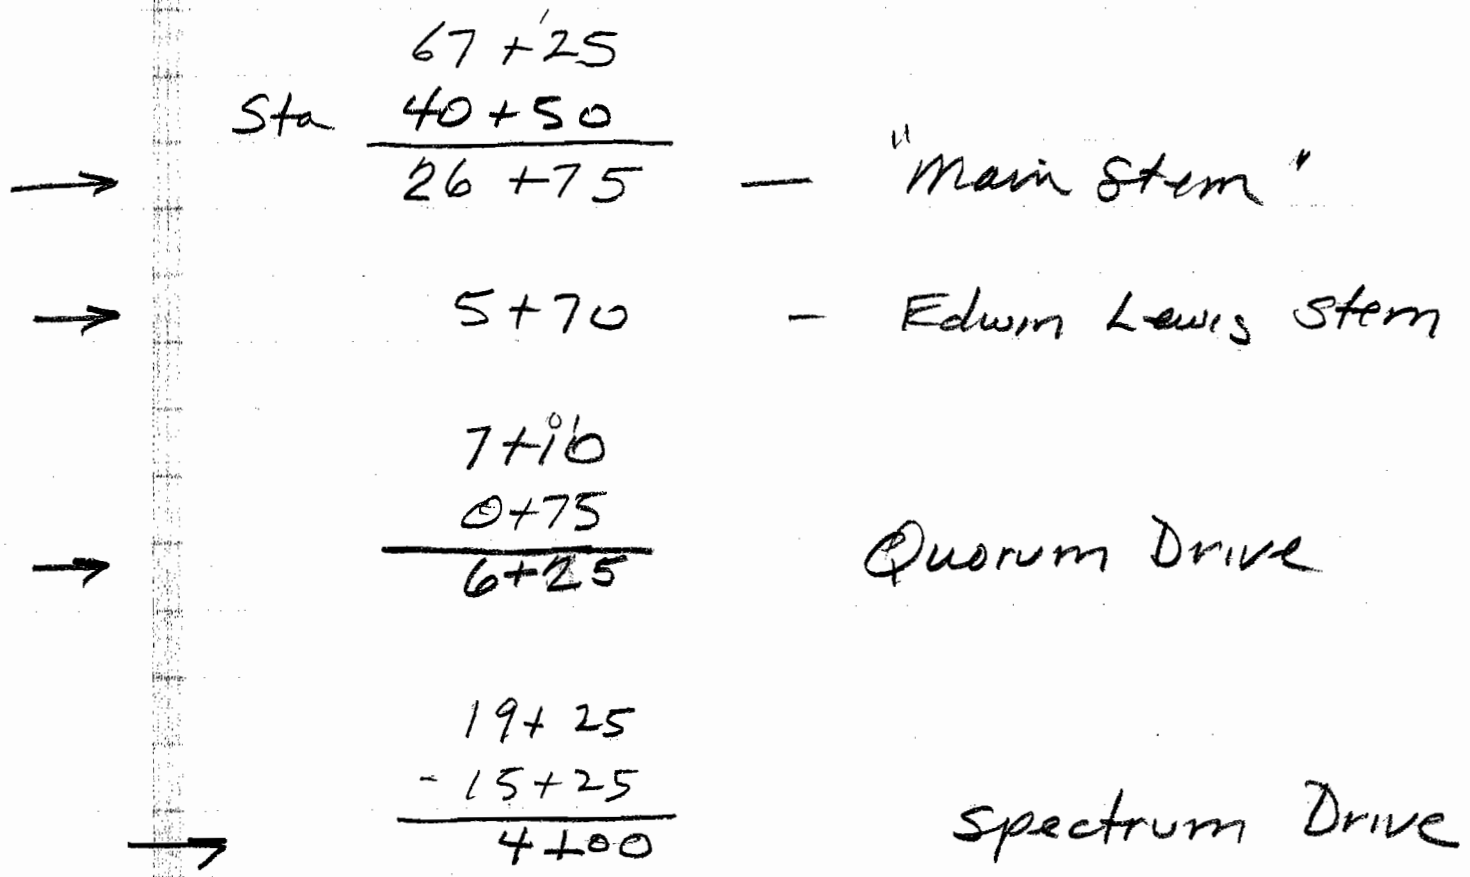 67+25
Sta 40+50
26+75 — "Main Stem"
5+70 - Edwin Lewis Stem
7+10
0+75
6+25 Quorum Drive
19+25
- 15+25
4+00 Spectrum Drive